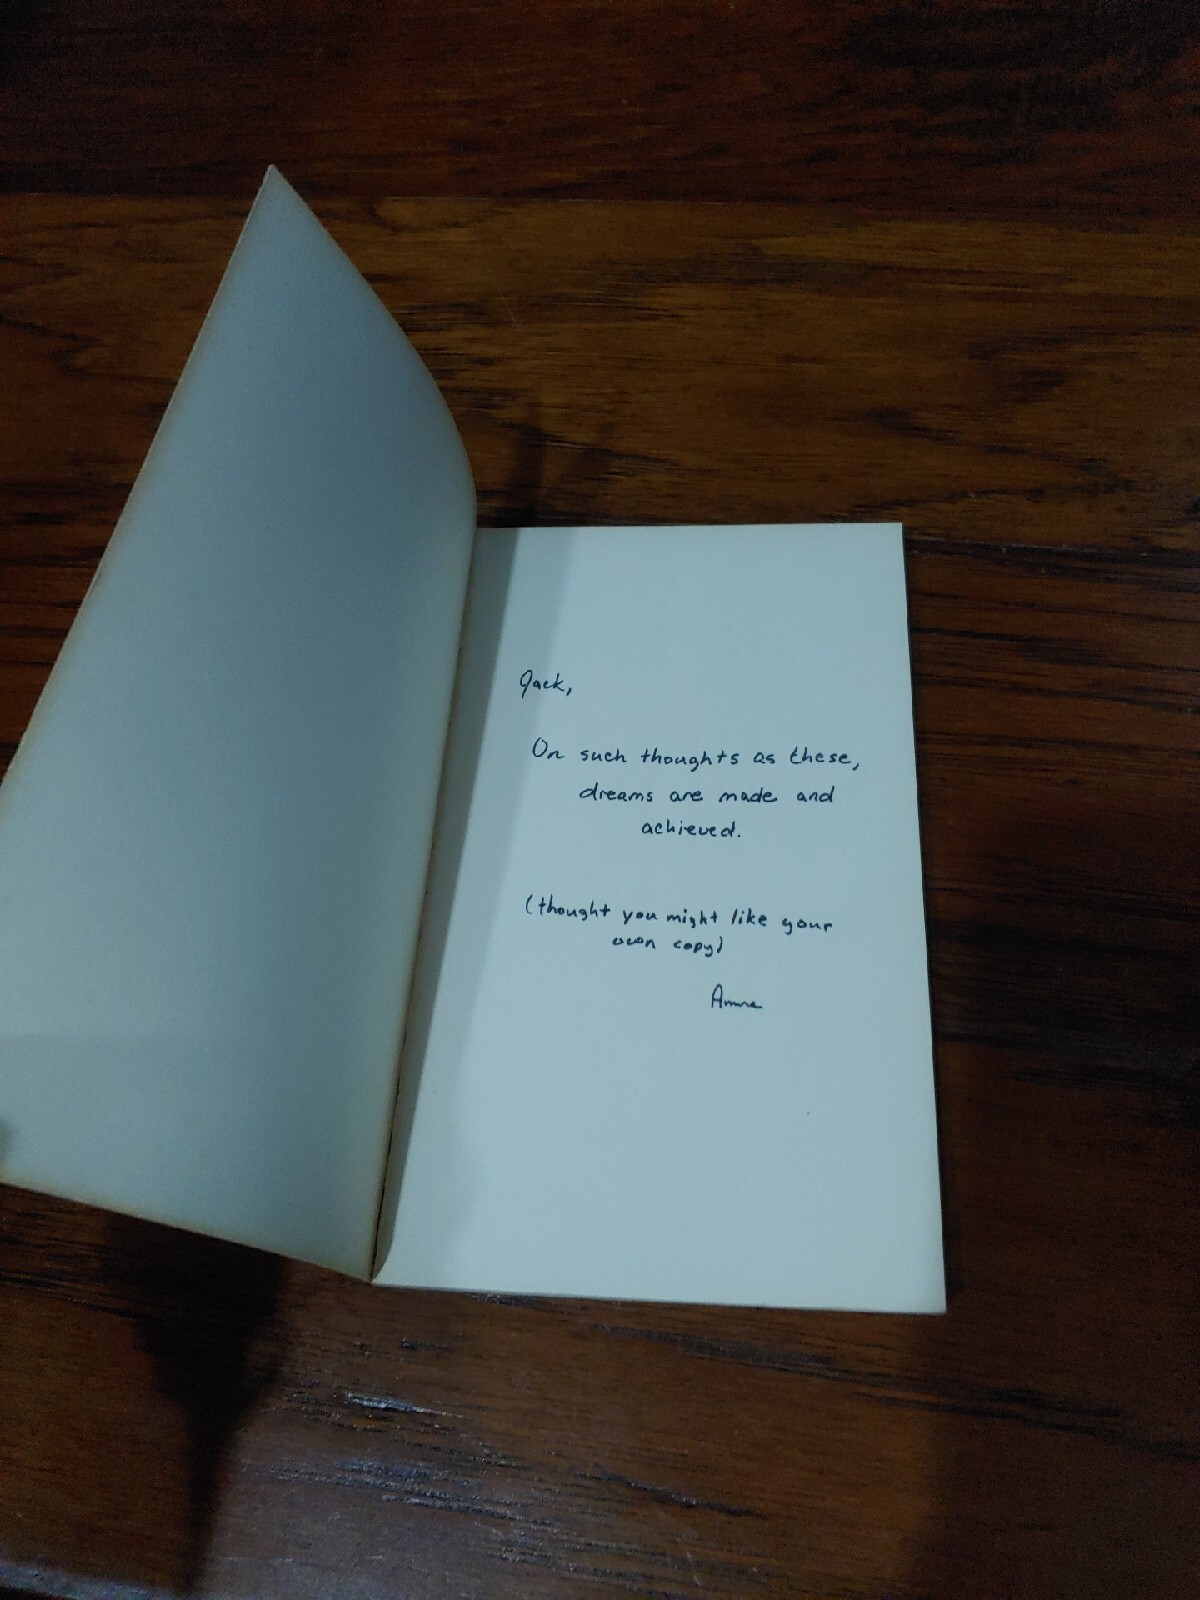 Jack,
On such thoughts as these,
dreams are made and
achieved.
(thought you might like your
own copy)
Anne